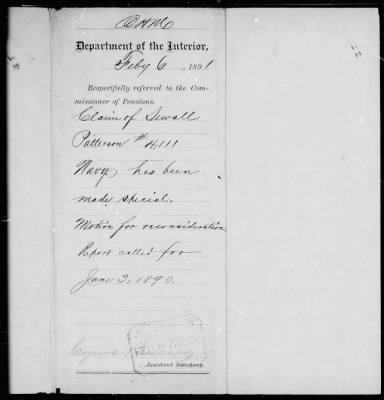 Department of the Interior,
Feby 6, 1891
Respectfully referred to the Com-
missioner of Pensions.
Claim of Sewall
Patterson # 4111
Navy, has been
made special.
Motion for reconsideration.
Report called for
June 3, 1890.
Cyrus
Assistant Secretary.